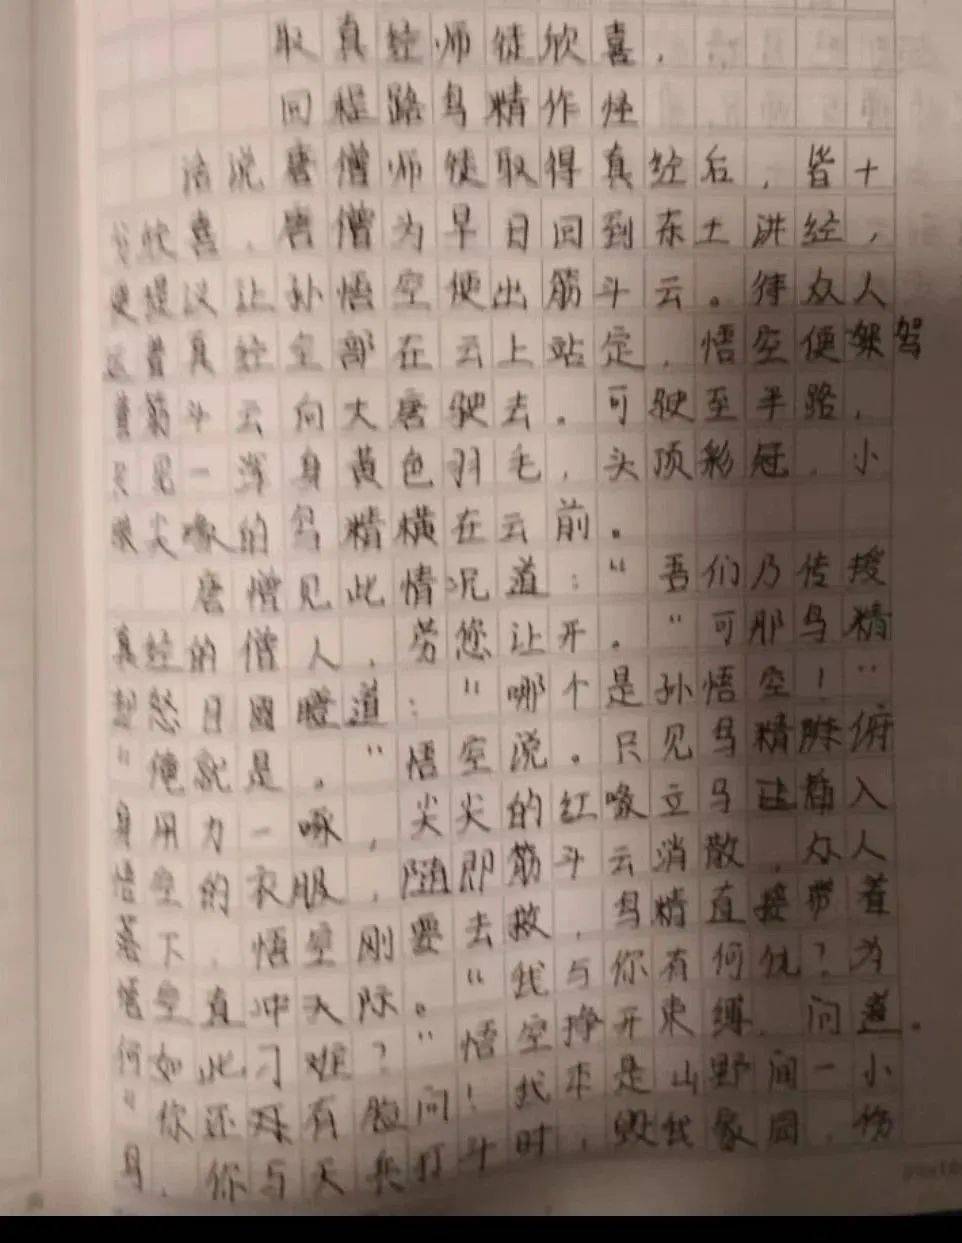 取真经师徒欣喜，
回程路鸟精作怪
话说唐僧师徒取得真经后，皆十
分欣喜，唐僧为早日回到东土讲经，
便提议让孙悟空使出筋斗云。待众人
运着真经全部在云上站定，悟空便架驾
着筋斗云向大唐驶去。可驶至半路，
只见一浑身黄色羽毛，头顶彩冠，小
眼尖喙的鸟精横在云前。
唐僧见此情况道：“吾们乃传授
真经的僧人，劳您让开。”可那鸟精
怒目圆瞪道：“哪个是孙悟空！”
“俺就是。”悟空说。只见鸟精俯
身用力一啄，尖尖的红喙立马插入
悟空的衣服，随即筋斗云消散，众人
落下，悟空刚要去救，鸟精直接带着
悟空直冲天际。“我与你有何仇？为
何如此刁难？”悟空挣开束缚，问道。
“你还有脸问！我本是山野间一小
鸟，你与天兵打斗时，毁我家园，伤